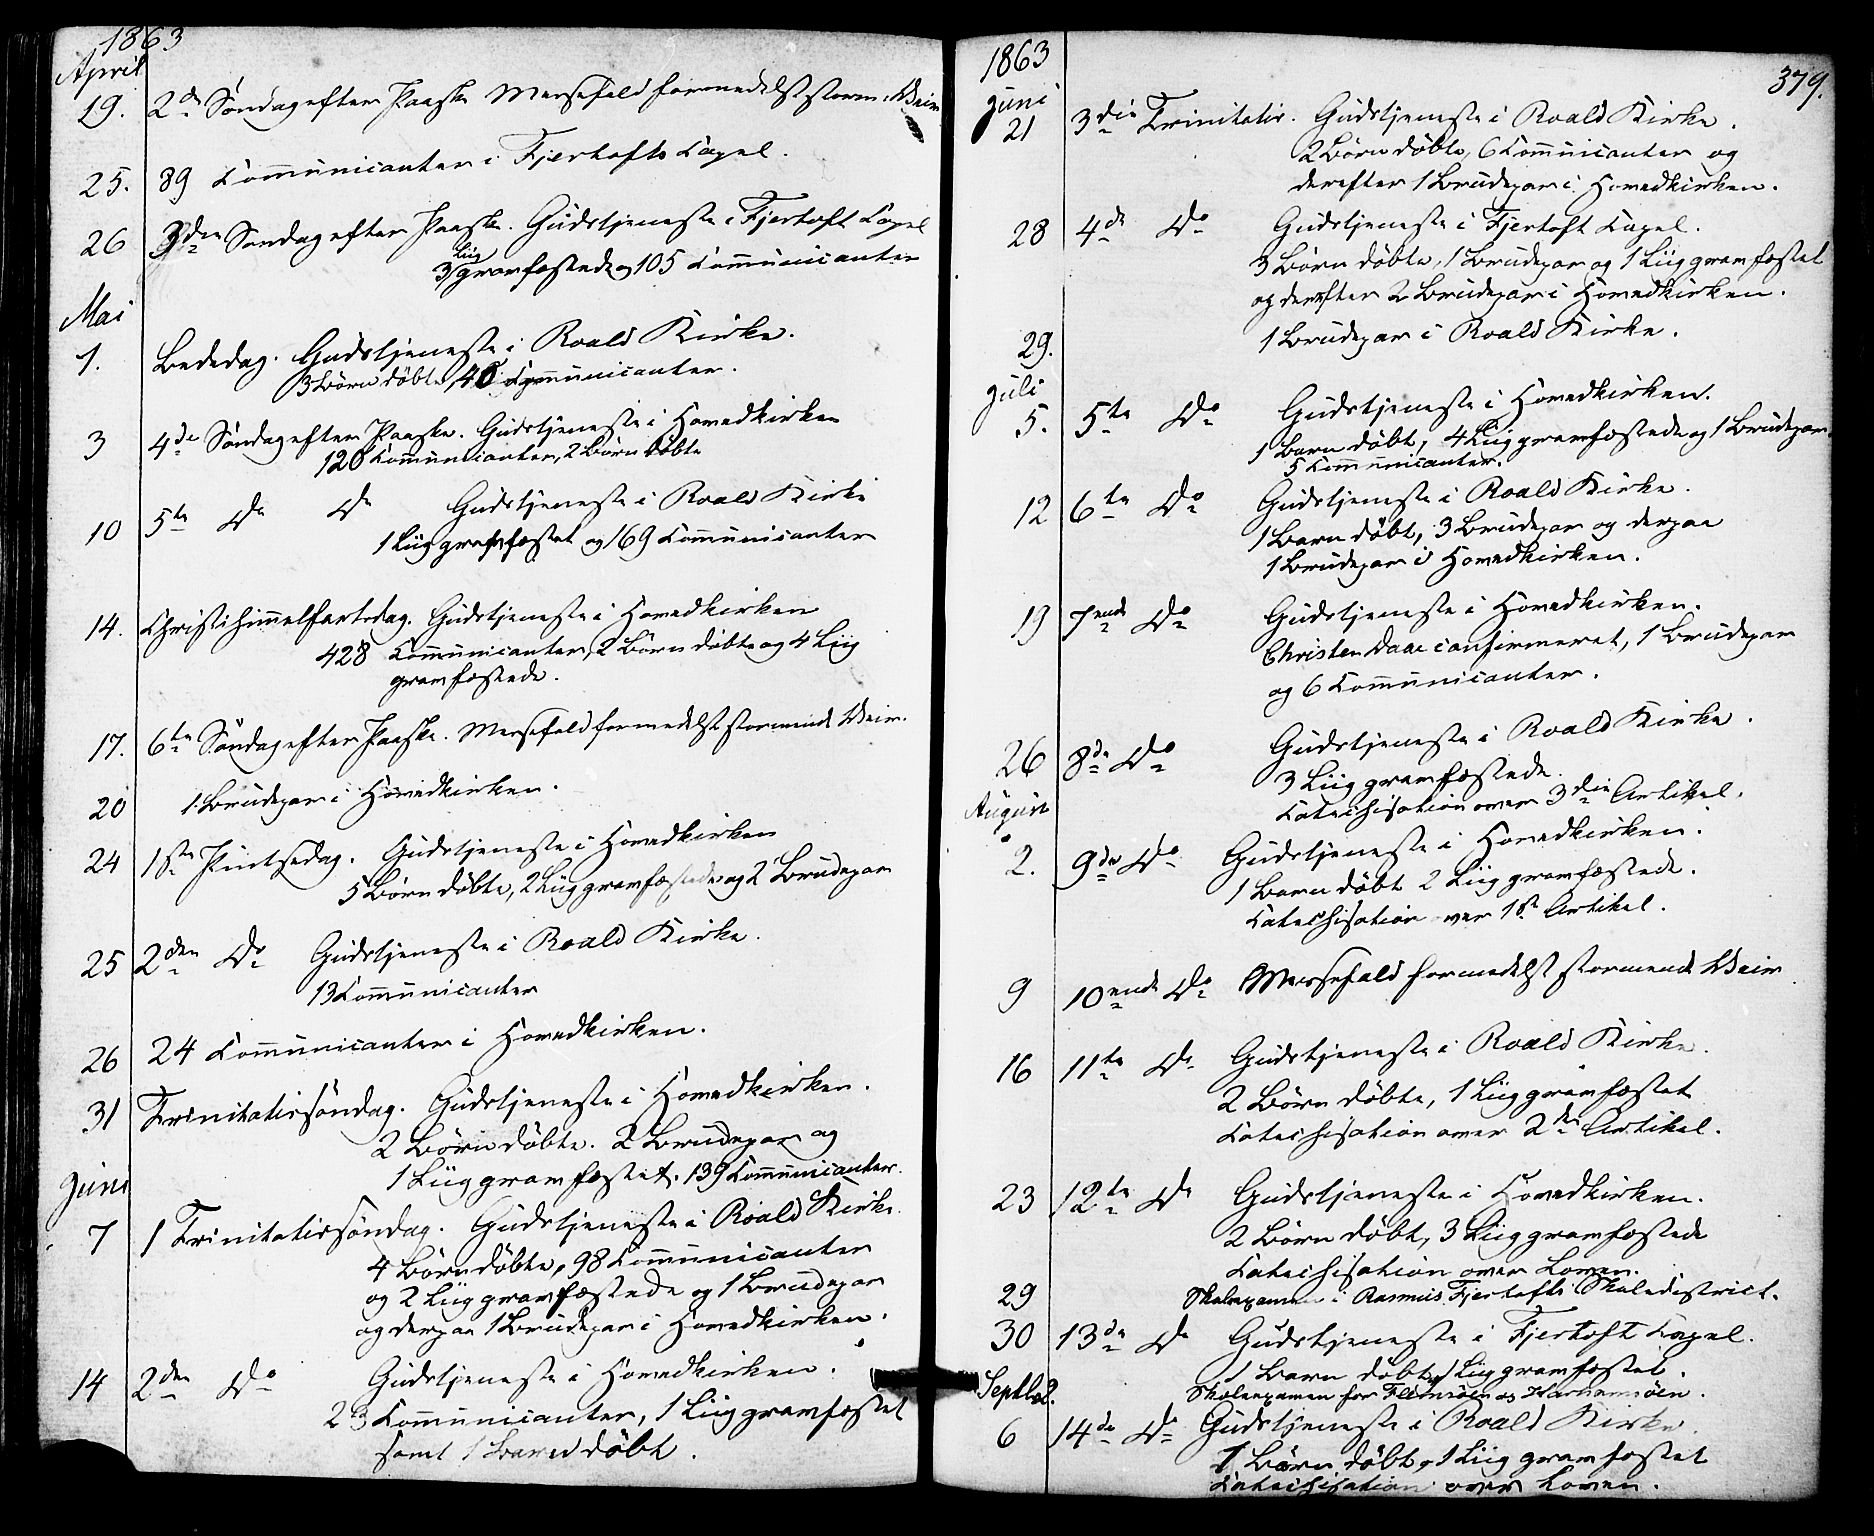 1863
April
19. 2de Søndag efter Paaske Messefald formedelst storm: Veir
25. 89 Communicanter i Fjertofts Capel.
26 3die Søndag efter Paaske. Gudstjeneste i Fjertoft Capel
3 Liig gravfæstede og 105 Communicanter
Mai
1. Bededag. Gudstjeneste i Roald Kirke.
3 Børn døbte, 40 Communicanter.
3 4de Søndag efter Paaske. Gudstjeneste i Hovedkirken
120 Communicanter, 2 Børn døbte
10 5te Do Do Gudstjeneste i Roald Kirke
1 Liig gravfæstet og 169 Communicanter
14. Christi himmelfartsdag. Gudstjeneste i Hovedkirken
428 Communicanter, 2 Børn døbte og 4 Liig
gravfæstede.
17. 6te Søndag efter Paaske. Messefald formedelst stormende Veir.
20 1 Brudepar i Hovedkirken.
24 1ste Pintsedag. Gudstjeneste i Hovedkirken
5 Børn døbte, 2 Liig gravfæstede og 2 Brudepar
25 2den Do Gudstjeneste i Roald Kirke.
13 Communicanter
26 24 Communicanter i Hovedkirken.
31 Trinitatissøndag. Gudstjeneste i Hovedkirken.
2 Børn døbte. 2 Brudepar og
1 Liig gravfæstet. 139 Communicanter.
Juni
7 1 Trinitatissøndag. Gudstjeneste i Roald Kirke.
4 Børn døbte, 98 Communicanter
og 2 Liig gravfæstede og 1 Brudepar
og derpaa 1 Brudepar i Hovedkirken.
14 2den Do Gudstjeneste i Hovedkirken.
23 Communicanter, 1 Liig gravfæstet
samt 1 Barn døbt.
379.
1863
Juni
21 3die Trinitatis. Gudstjeneste i Roald Kirke.
2 Børn døbte, 6 Communicanter og
derefter 1 Brudepar i Hovedkirken.
28 4de Do Gudstjeneste i Fjertoft Capel.
3 Børn døbte, 1 Brudepar og 1 Liig gravfæstet
og derefter 2 Brudepar i Hovedkirken.
29. 1 Brudepar i Roald Kirke.
Juli
5. 5te Do Gudstjeneste i Hovedkirken.
1 Barn døbt, 4 Liig gravfæstede og 1 Brudepar.
5 Communicanter.
12 6te Do Gudstjeneste i Roald Kirke.
1 Barn døbt, 3 Brudepar og derpaa
1 Brudepar i Hovedkirken.
19 7ende Do Gudstjeneste i Hovedkirken.
Christen Daae confirmeret, 1 Brudepar
og 6 Communicanter.
26 8de Do Gudstjeneste i Roald Kirke.
3 Liig gravfæstede.
Catechisation over 3die Artikel.
August
2. 9de Do Gudstjeneste i Hovedkirken.
1 Barn døbt 2 Liig gravfæstede.
Catechisation over 1ste Artikel.
9 10ende Do Messefald formedelst stormende Veir
16 11te Do Gudstjeneste i Roald Kirke.
2 Børn døbte, 1 Liig gravfæstet
Catechisation over 2den Artikel.
23 12te Do Gudstjeneste i Hovedkirken.
2 Børn døbt, 3 Liig gravfæstede
Catechisation over Loven.
29 Skoleexamen i Rasmus Fjertofts Skoledistrict.
30 13de Do Gudstjeneste i Fjertoft Capel.
1 Barn døbt, 1 Liig gravfæstet.
Septbr 2. Skoleexamen for Flemsøen og Harhamsøen.
6 14de Do Gudstjeneste i Roald Kirke.
1 Børn døbt, 1 Liig gravfæstet
Catechisation over Loven.